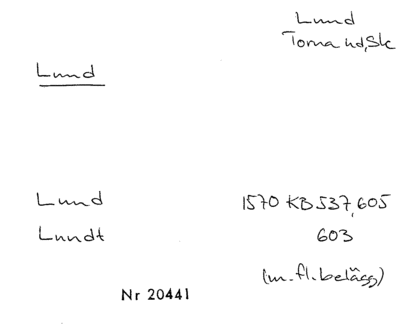 Lund
Torna hd, Sk
Lund
Lund 1570 KB 537, 605
Lundt 603
(m. fl. belägg)
Nr 20441